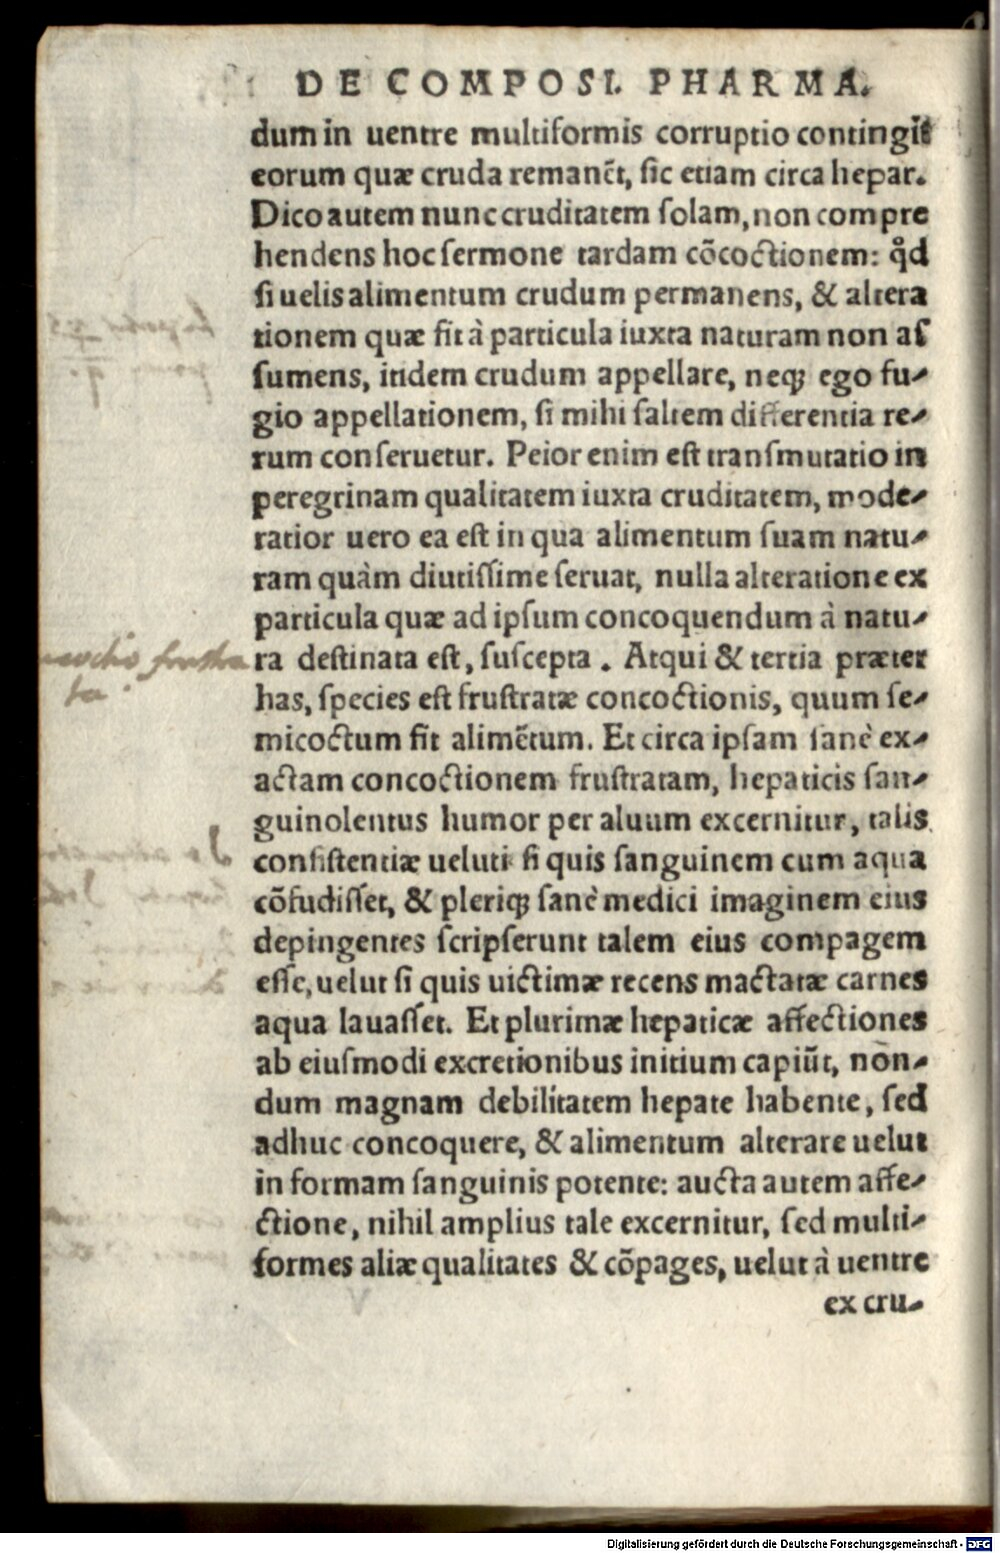 DE COMPOSI. PHARMA.
dum in uentre multiformis corruptio contingit
eorum quæ cruda remanẽt, sic etiam circa hepar.
Dico autem nunc cruditatem solam, non compre
hendens hoc sermone tardam cõcoctionem: qd̉
si uelis alimentum crudum permanens, & altera
tionem quæ fit à particula iuxta naturam non as
sumens, itidem crudum appellare, neq; ego fu-
gio appellationem, si mihi saltem differentia re-
rum conseruetur. Peior enim est transmutatio in
peregrinam qualitatem iuxta cruditatem, mode-
ratior uero ea est in qua alimentum suam natu-
ram quàm diutissime seruat, nulla alteratione ex
particula quæ ad ipsum concoquendum à natu-
ra destinata est, suscepta. Atqui & tertia præter
has, species est frustratæ concoctionis, quum se-
micoctum fit alimẽtum. Et circa ipsam sanè ex-
actam concoctionem frustratam, hepaticis san-
guinolentus humor per aluum excernitur, talis
consistentiæ ueluti si quis sanguinem cum aqua
cõfudisset, & pleriq; sanè medici imaginem eius
depingentes scripserunt talem eius compagem
esse, uelut si quis uictimæ recens mactatæ carnes
aqua lauasset. Et plurimæ hepaticæ affectiones
ab eiusmodi excretionibus initium capiũt, non-
dum magnam debilitatem hepate habente, sed
adhuc concoquere, & alimentum alterare uelut
in formam sanguinis potente: aucta autem affe-
ctione, nihil amplius tale excernitur, sed multi-
formes aliæ qualitates & cõpages, uelut à uentre
ex cru-
frustra
ta.
Digitalisierung gefördert durch die Deutsche Forschungsgemeinschaft - DFG